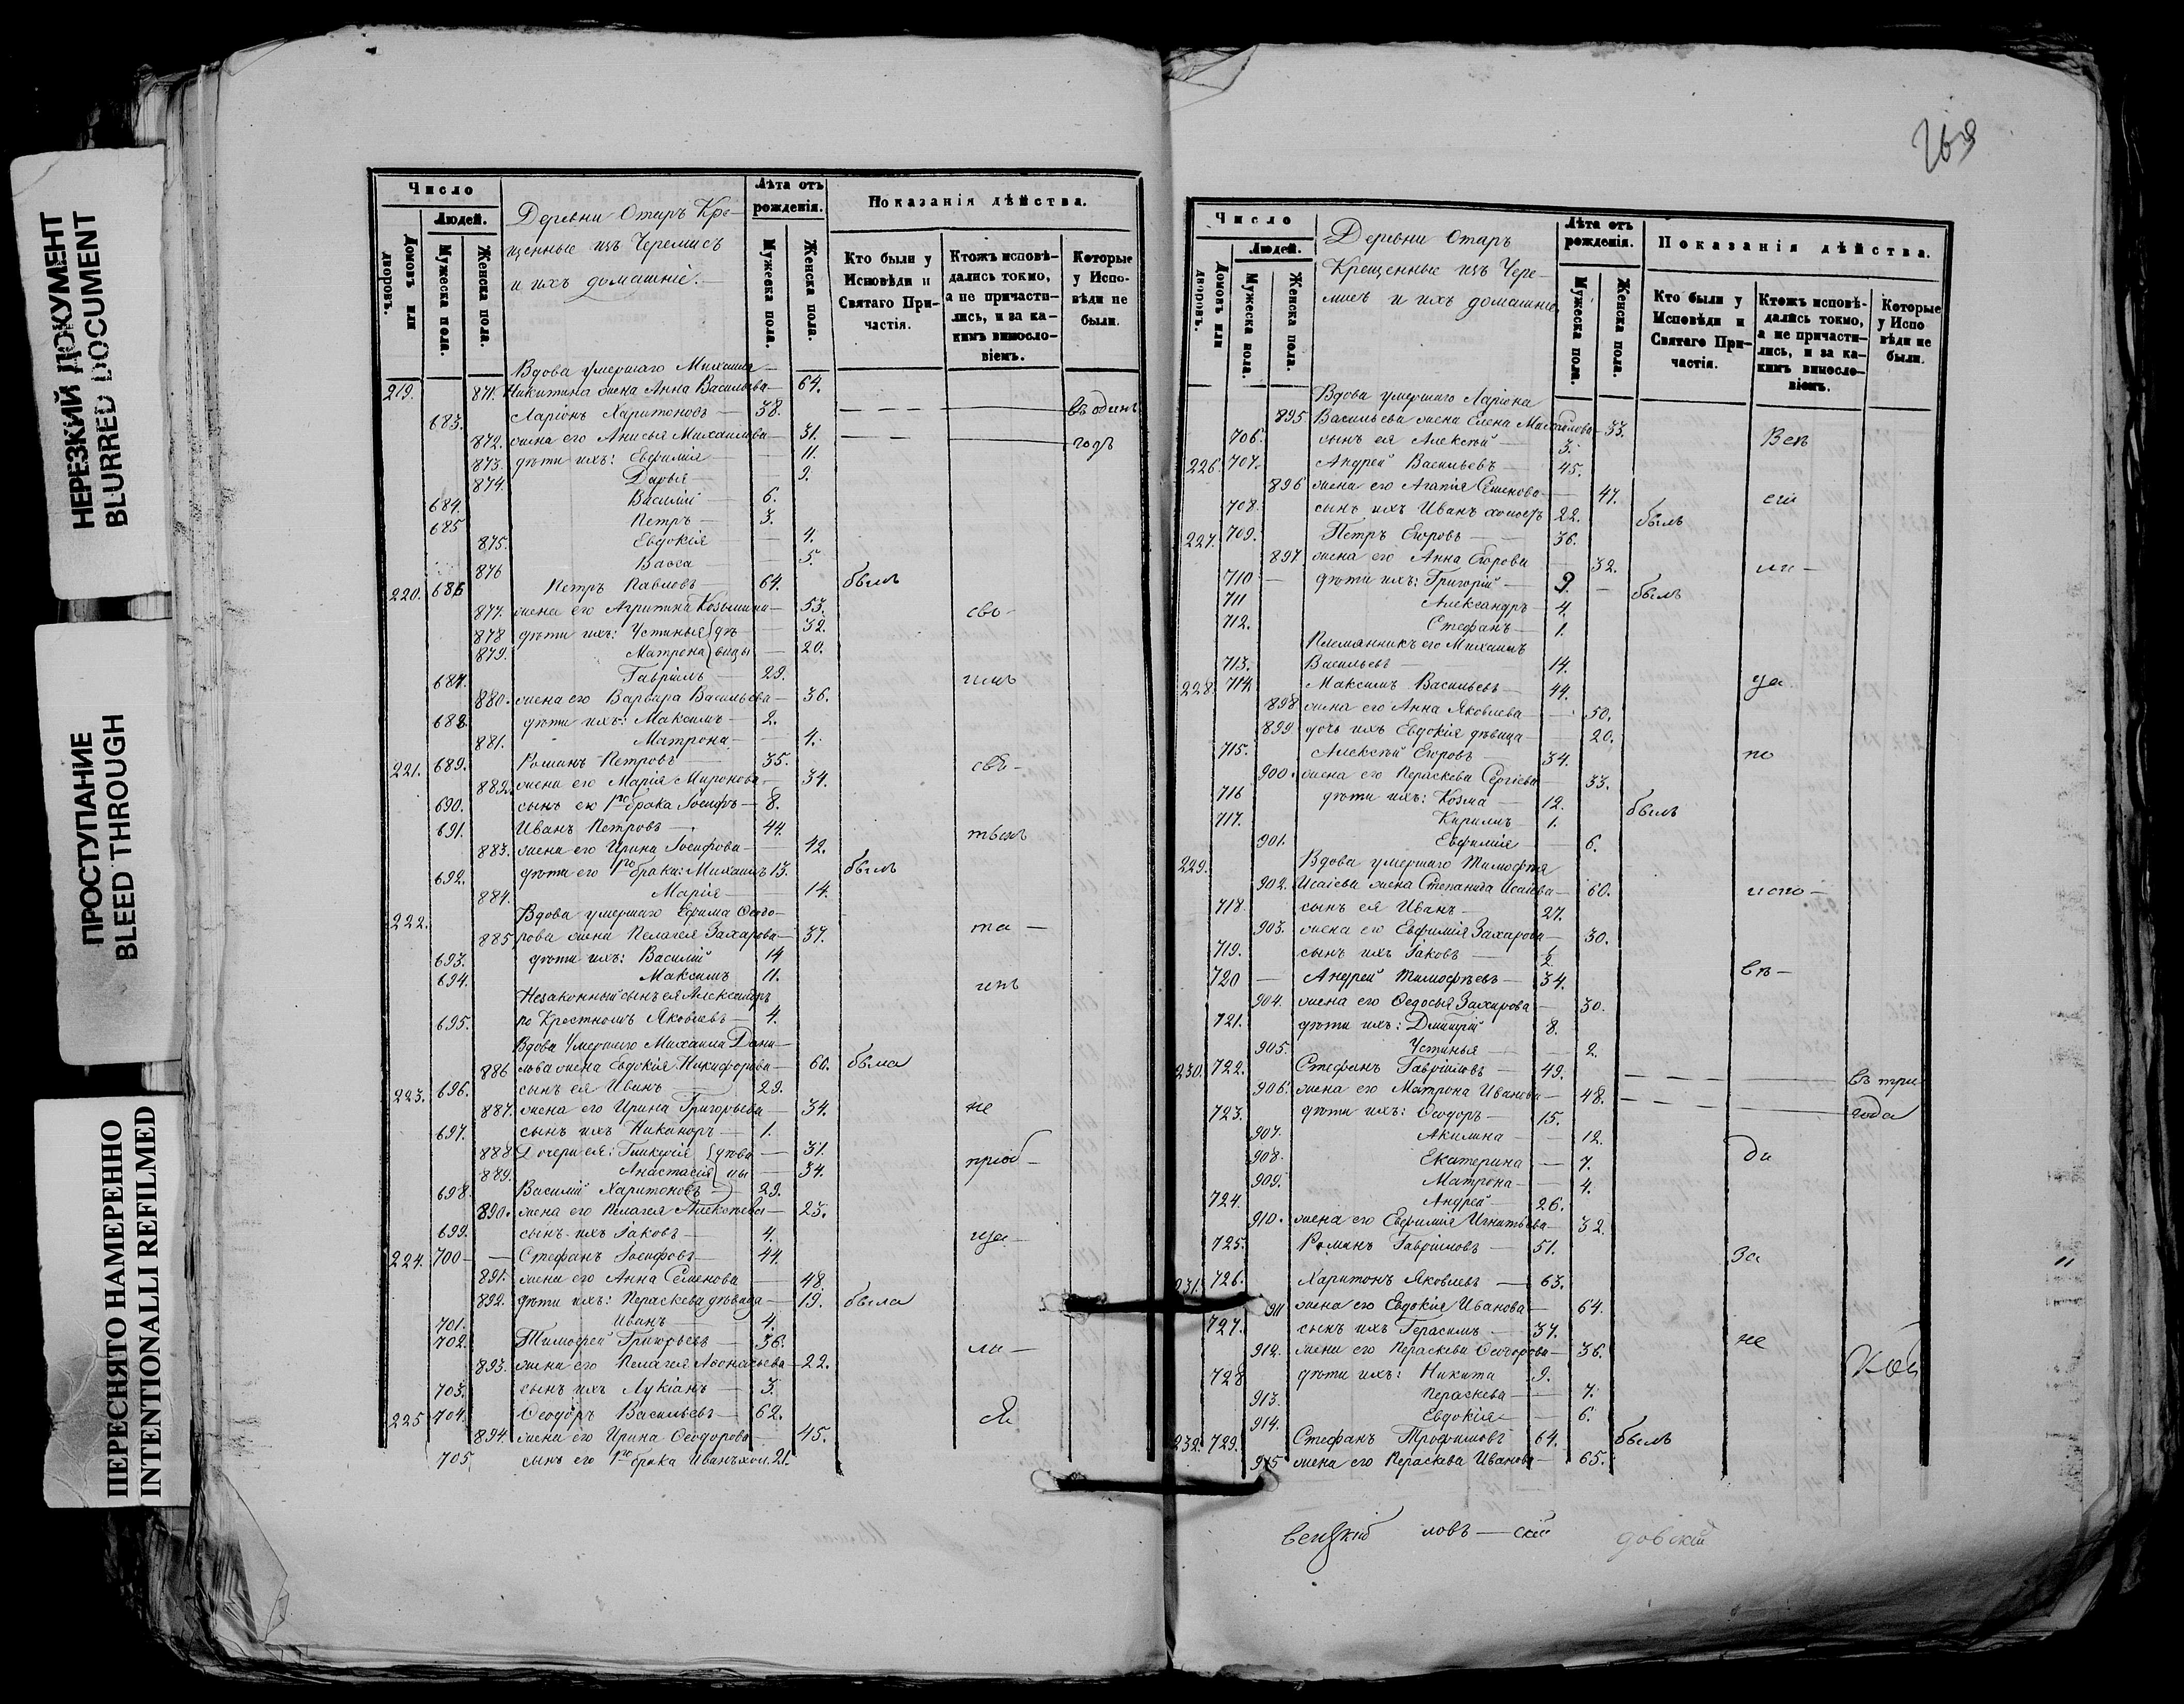 НЕРЕЗКИЙ ДОКУМЕНТ
BLURRED DOCUMENT
ПРОСТУПАНИЕ
BLEED THROUGH
ПЕРЕСНЯТО НАМЕРЕННО
INTENTIONALLI REFILMED
Число
Людей.
Домовъ или дворовъ.
Мужеска пола.
Женска пола.
Деревни Отаръ Кре-
щенные изъ Черемисъ
и ихъ домашніе.
Лѣта отъ рожденія.
Мужеска пола.
Женска пола.
Показанія дѣйства.
Кто были у Исповѣди и Святаго Причастія.
Ктожъ исповѣ-дались токмо, а не причасти-лись, и за ка-кимъ винословіемъ.
Которые у Испо-вѣди не были.
Вдова умершаго Михаила
219. 871. Никитина жена Анна Васильева — 64.
683. Ларіонъ Харитоновъ — 38. въ одинъ
872. жена его Анисья Михаилова — 31. годъ
873. дѣти ихъ: Евфимія — 11.
874. Дарья 9.
684. Василій — 6.
685 Петръ — 3.
875. Евдокія — 4.
876 Васса — 5.
220. 686 Петръ Павловъ — 64. былъ
877. жена его Агрипина Козьмина — 53. свѣ-
878 дѣти ихъ: Устинья } дѣ- — 32.
879. Матрона } вицы — 20.
687. Гавріилъ — 29.
880. жена его Варвара Васильева — 36.
688. дѣти ихъ: Максимъ — 2.
881. Матрона — 4.
221. 689. Романъ Петровъ — 35.
882. жена его Марія Миронова — 34.
690. сынъ ею 1го брака Іосифъ — 8.
691. Иванъ Петровъ — 44.
883. жена его Ирина Іосифова — 42.
692. дѣти его 1го брака: Михаилъ 13. былъ
884. Марія — 14.
222. Вдова умершаго Ефима Ѳедо-
885 рова жена Пелагея Захарова — 37. та —
693. дѣти ихъ: Василій 14
694. Максимъ 11.
Незаконный сынъ ея Александръ
695. по Крестномъ Яковлевъ — 4.
Вдова Умершаго Михаила Дани-
886 лова жена Евдокія Никифорова — 60. была
223. 696. сынъ ея Иванъ — 29.
887. жена его Ирина Григорьева — 34. не
697. сынъ ихъ Никаноръ — 1.
888 Дочери ея: Гликерія } дѣви — 31. пріоб —
889. Анастасія } цы — 34.
698. Василій Харитоновъ — 29.
890. жена его Пелагея Алексѣева — 23.
699. сынъ ихъ Іаковъ — 4. ща —
224. 700 — Стефанъ Іосифовъ — 44.
891. жена его Анна Семенова — 48.
892. дѣти ихъ: Параскева дѣвица — 19. была
701. Иванъ — 4.
702. Тимофей Григорьевъ — 36. ли —
893. жена его Пелагея Аѳонасьева — 22.
703. сынъ ихъ Лукіанъ — 3.
225 704. Ѳеодоръ Васильевъ — 62. ся
894. жена его Ирина Ѳеодорова — 45.
705 сынъ его 1го брака Иванъ хол. 21.
269
Число
Людей.
Домовъ или дворовъ.
Мужеска пола.
Женска пола.
Деревни Отаръ
Крещенные изъ Чере-
мисъ и ихъ домашніе
Лѣта отъ рожденія.
Мужеска пола.
Женска пола.
Показанія дѣйства.
Кто были у Исповѣди и Святаго При-частія.
Ктожъ исповѣ-дались токмо, а не причасти-лись, и за ка-кимъ винословіемъ.
Которые у Испо вѣди не были.
Вдова умершаго Ларіона
895 Васильева жена Елена Михайлова — 33. Всѣ
706. сынъ ея Алексѣй — 3.
226. 707. Андрей Васильевъ — 45.
896 жена его Агапія Семенова — 47. сіи
708. сынъ ихъ Иванъ холостъ 22. былъ
227. 709. Петръ Егоровъ — 36.
897 жена его Анна Егорова — 32. ли —
710 — дѣти ихъ: Григорій — 9. былъ
711 Александръ — 4.
712. Стефанъ — 1.
Племянникъ его Михаилъ
713. Васильевъ — 14.
228. 714. Максимъ Васильевъ — 44. ца
898 жена его Анна Яковлева — 50.
899. дочь ихъ Евдокія дѣвица — 20.
715. Алексѣй Егоровъ — 34. по
900. жена его Параскева Сергіева — 33.
716 дѣти ихъ: Козма — 12. былъ
717. Кирилъ — 1.
901. Евфимія — 6.
229. Вдова умершаго Тимофея
902. Исаіева жена Степанида Исаіева — 60. испо —
718. сынъ ея Иванъ — 27.
903. жена его Евфимія Захарова — 30.
719. сынъ ихъ Іаковъ — ½
720 — Андрей Тимофѣевъ — 34. вѣ —
904. жена его Ѳедосья Захарова — 30.
721. дѣти ихъ: Дмитрій 8.
905. Устинья — 2.
230. 722. Стефанъ Гавріиловъ — 49. въ три
906. жена его Матрона Иванова — 48. года
723. дѣти ихъ: Ѳеодоръ — 15.
907. Акилина — 12.
908. Екатерина — 7. ди
909. Матрона — 4.
724. Андрей — 26.
910. жена его Евфимія Игнатьева — 32.
725. Романъ Гавріиловъ — 51. За
231. 726. Харитонъ Яковлевъ — 63.
911 жена его Евдокія Иванова — 64.
727. сынъ ихъ Герасимъ — 37. не
912. жена его Параскева Ѳеодорова — 36.
728 дѣти ихъ: Никита 9.
913. Параскева — 7.
914. Евдокія — 6.
232. 729. Стефанъ Трофимовъ 64. былъ
915 жена его Параскева Иванова — 65.
ловъ — скій
довскій